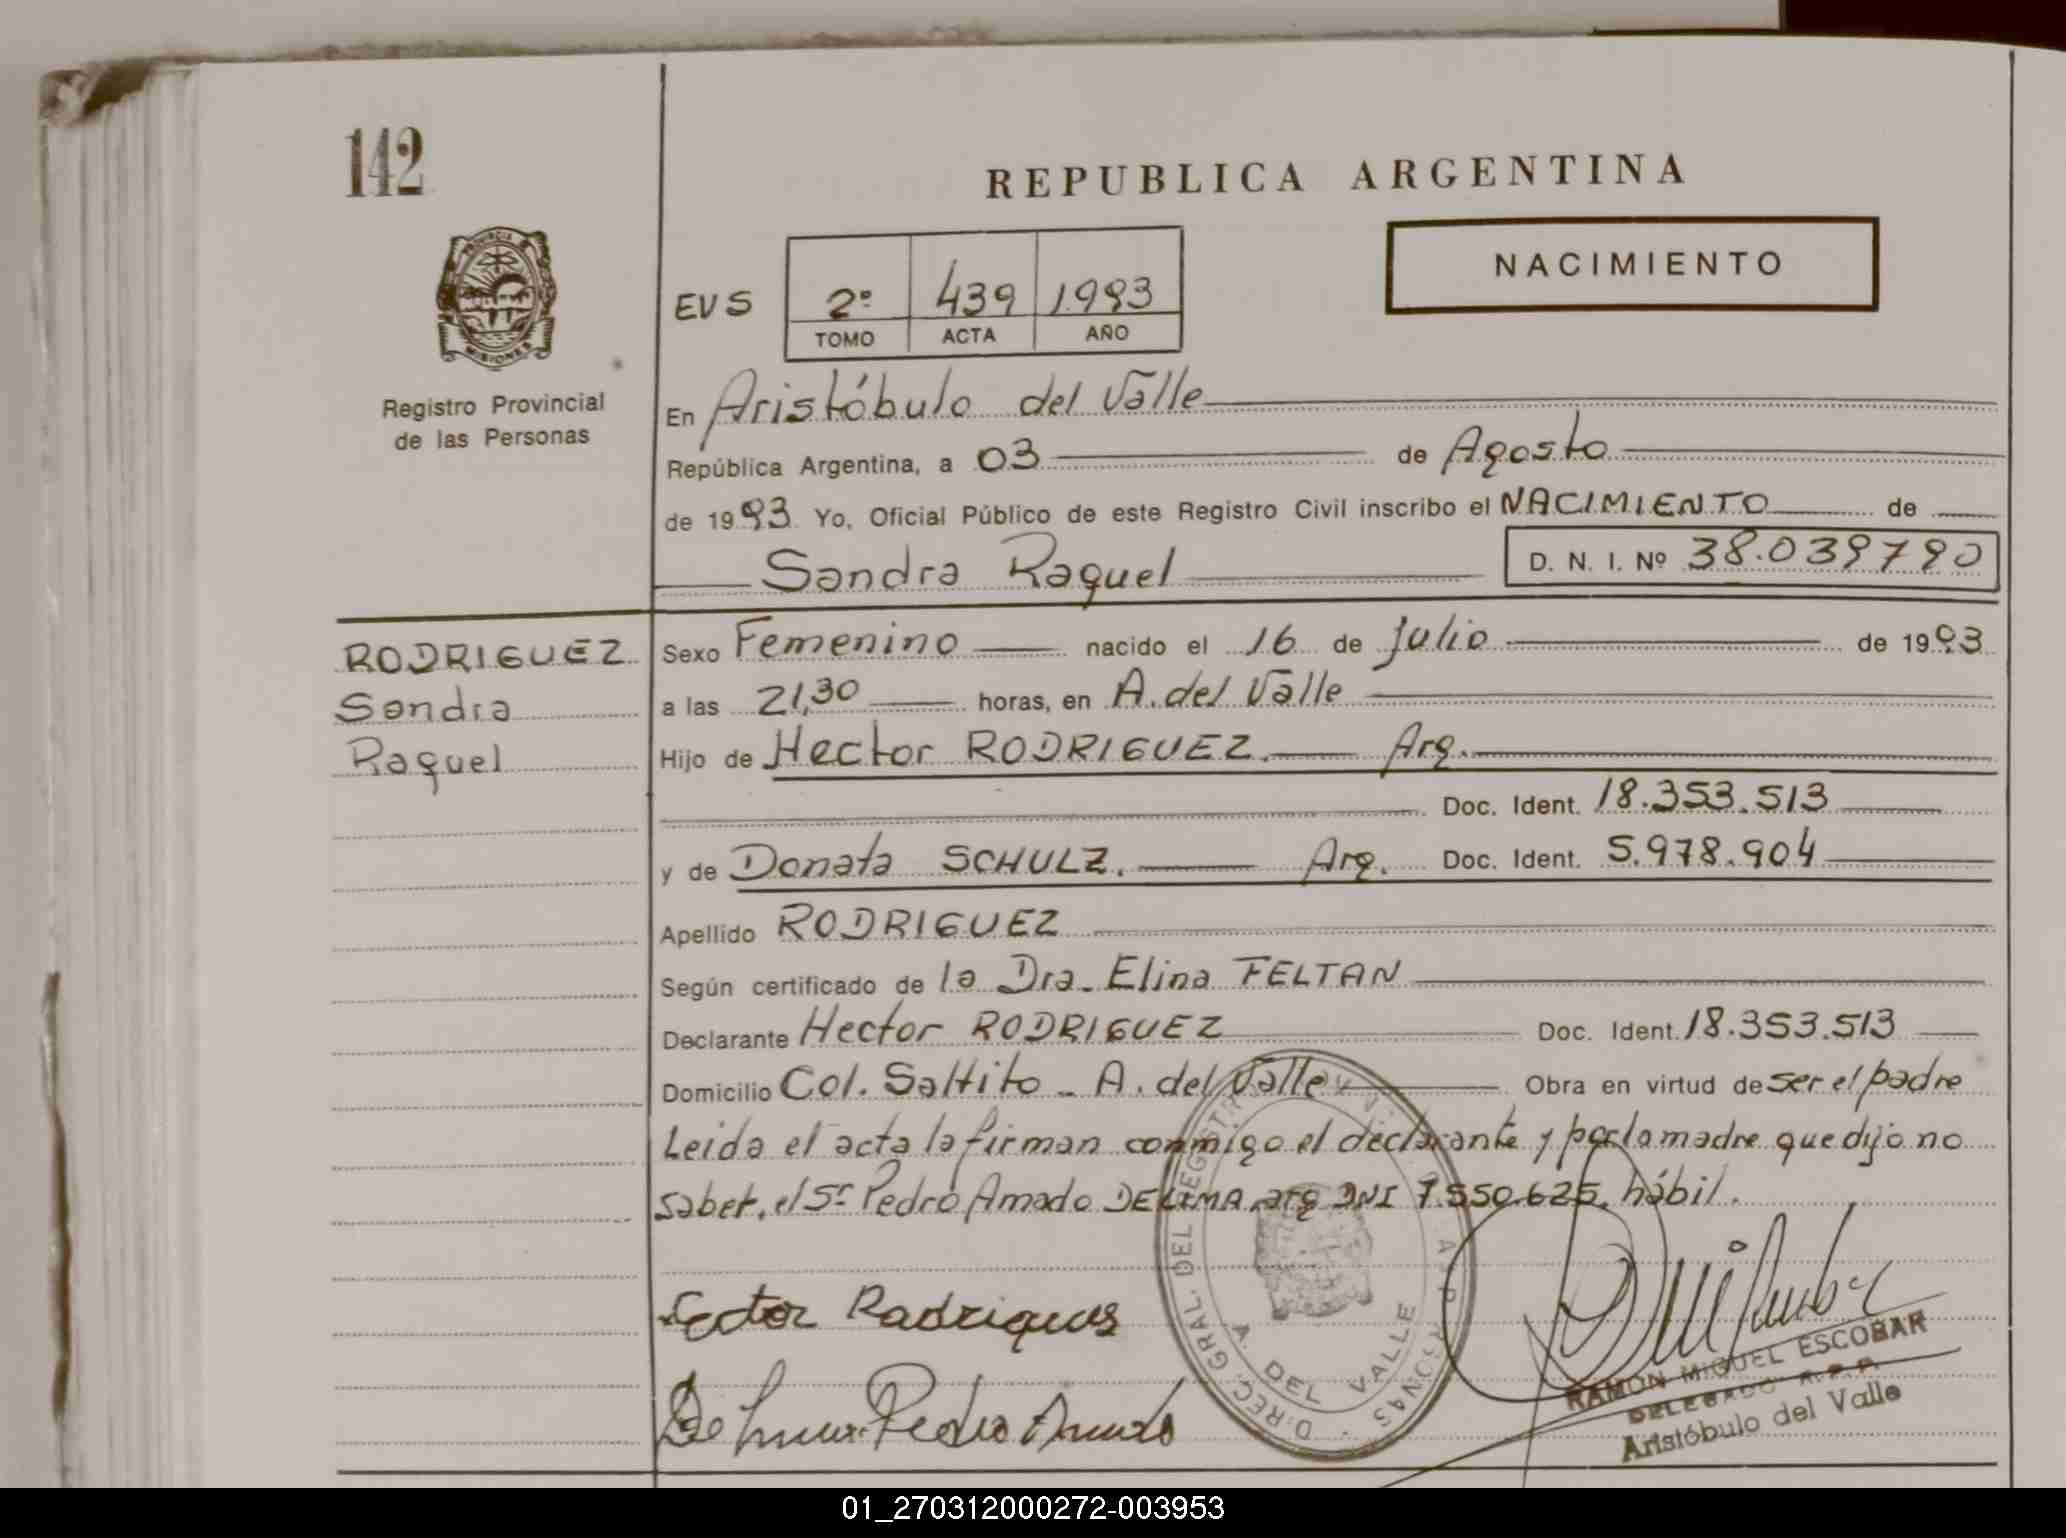 142
REPUBLICA ARGENTINA
NACIMIENTO
PROVINCIA DE
MISIONES
EVS 2º 439 1.993
TOMO ACTA AÑO
Registro Provincial
de las Personas
En Aristóbulo del Valle
República Argentina, a 03 de Agosto
de 1993 Yo, Oficial Público de este Registro Civil inscribo el NACIMIENTO de
Sandra Raquel D. N. I. Nº 38.039790
RODRIGUEZ
Sandra
Raquel
Sexo Femenino nacido el 16 de Julio de 1993
a las 21,30 horas, en A. del Valle
Hijo de Hector RODRIGUEZ. Arg.
Doc. Ident. 18.353.513
y de Donata SCHULZ. Arg. Doc. Ident. 5.978.904
Apellido RODRIGUEZ
Según certificado de la Dra. Elina FELTAN
Declarante Hector RODRIGUEZ Doc. Ident. 18.353.513
Domicilio Col. Saltito - A. del Valle Obra en virtud de ser el padre
Leida el acta la firman conmigo el declarante y por la madre que dijo no
saber, el Sr Pedro Amado DELIMA, arg DNI 7.550.625, hábil.
DIREC. GRAL. DEL REGISTR
A. DEL VALLE
Rodrigues
De Lima Pedro Amado
RAMON MIGUEL ESCOBAR
DELEGADO R.P.P.
Aristóbulo del Valle
01_270312000272-003953